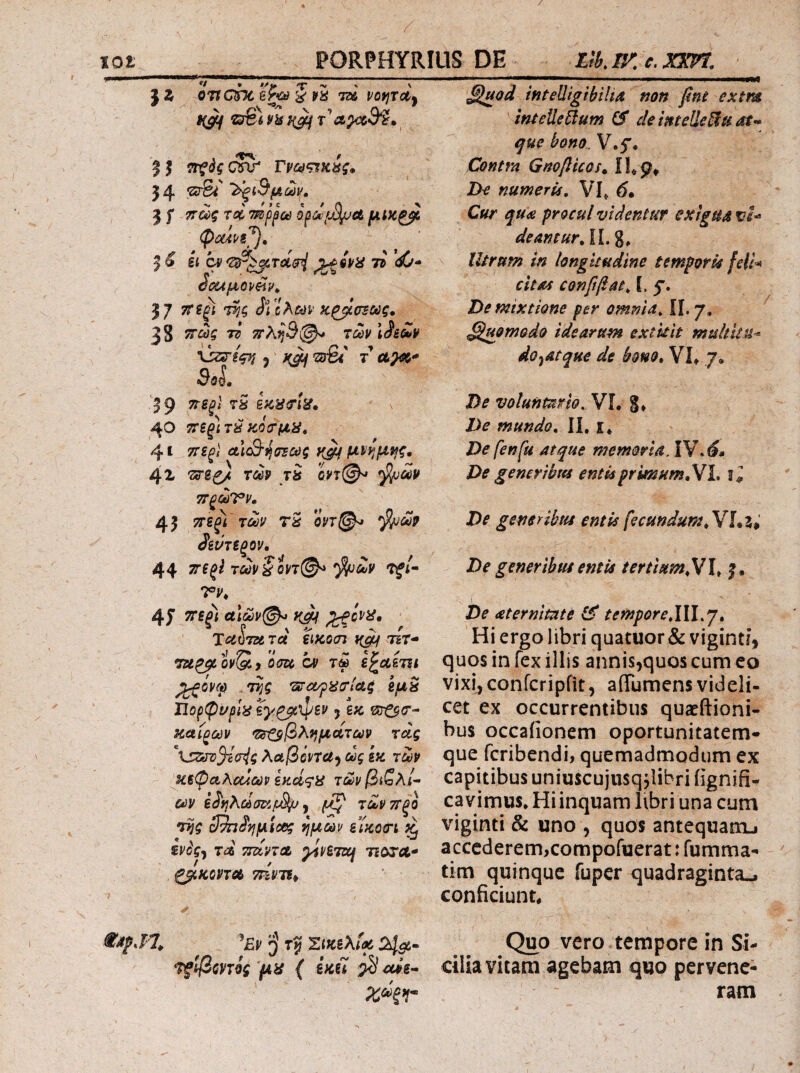 102 PORPHYRIUS DE Lib. IV. c. XXVI.
32 ὅτι Cʹοκ ἔξω ȣ͂ νȣ͂ τὰ νοητὰ,
καὶ περὶ νȣ͂ καὶ τ' ἀγαθȣ͂.
33 πρὸς τȣ̀ς Γνωστικȣ́ς.
34 περὶ ἀριθμῶν.
35 πῶς τὰ πόρρω ὁρώμενα μικρὰ
φαίνε).
36 εἰ ἐν παρατάσει χρόνȣ τὸ εὐ-
δαιμονεῖν.
37 περὶ τῆς δι' ὅλων κράσεως.
38 πῶς τὸ πλῆθος τῶν ἰδεῶν
ὑπέστη, καὶ περὶ τ' ἀγα-
θοῦ.
39 περὶ τȣ͂ ἑκȣσίȣ.
40 περὶ τȣ͂ κόσμȣ.
41 περὶ αἰσθήσεως καὶ μνήμης.
42 περὶ τῶν τȣ͂ ὄντος γενῶν
πρῶτον.
43 περὶ τῶν τȣ͂ ὄντος γενῶν
δεύτερον.
44 περὶ τῶν ȣ͂ ὄντος γενῶν τρί-
τον.
45 περὶ αἰῶνος καὶ χρόνȣ.
Ταῦτα τὰ εἴκοσι καὶ τέτ-
ταρα ὄντα, ὅσα ἐν τῷ ἑξαέτει
χρόνῳ τῆς παρȣσίας ἐμȣ͂
Πορφυρίȣ ἔγραψεν, ἐκ προσ-
καίρων προβλημάτων τὰς
ὑποθέσεις λαβόντα, ὡς ἐκ τῶν
κεφαλαίων ἑκάστȣ τῶν βιβλί-
ων ἐδηλώσαμεν, μετὰ τῶν πρὸ
τῆς ἐπιδημίας ἡμῶν εἴκοσι καὶ
ἑνὸς, τὰ πάντα γίνεται τεσσα-
ράκοντα πέντε.
Cap. VI. Ἐν δὲ τῇ Σικελίᾳ δια-
τρίβοντός μȣ ( ἐκεῖ γὰρ ἀνε-
χώρη-
Quod intelligibilia non sint extra
intellectum & de intellectu at-
que bono. V. 5.
Contra Gnosticos. II. 9.
De numeris. VI. 6.
Cur quæ procul videntur exigua vi-
deantur. II. 8.
Utrum in longitudine temporis feli-
citas consistat. I. 5.
De mixtione per omnia. II. 7.
Quomodo idearum extitit multitu-
do, atque de bono. VI. 7.
De voluntario. VI. 8.
De mundo. II. 1.
De sensu atque memoria. IV. 6.
De generibus entis primum. VI. 1.
De generibus entis secundum. VI. 2.
De generibus entis tertium. VI. 3.
De æternitate & tempore. III. 7.
Hi ergo libri quatuor & viginti,
quos in sex illis annis, quos cum eo
vixi, conscripsit, assumens videli-
cet ex occurrentibus quæstioni-
bus occasionem oportunitatem-
que scribendi, quemadmodum ex
capitibus uniuscujusq; libri signifi-
cavimus. Hi inquam libri una cum
viginti & uno, quos antequam
accederem, composuerat: summa-
tim quinque super quadraginta
conficiunt.
Quo vero tempore in Si-
cilia vitam agebam quo pervene-
ram